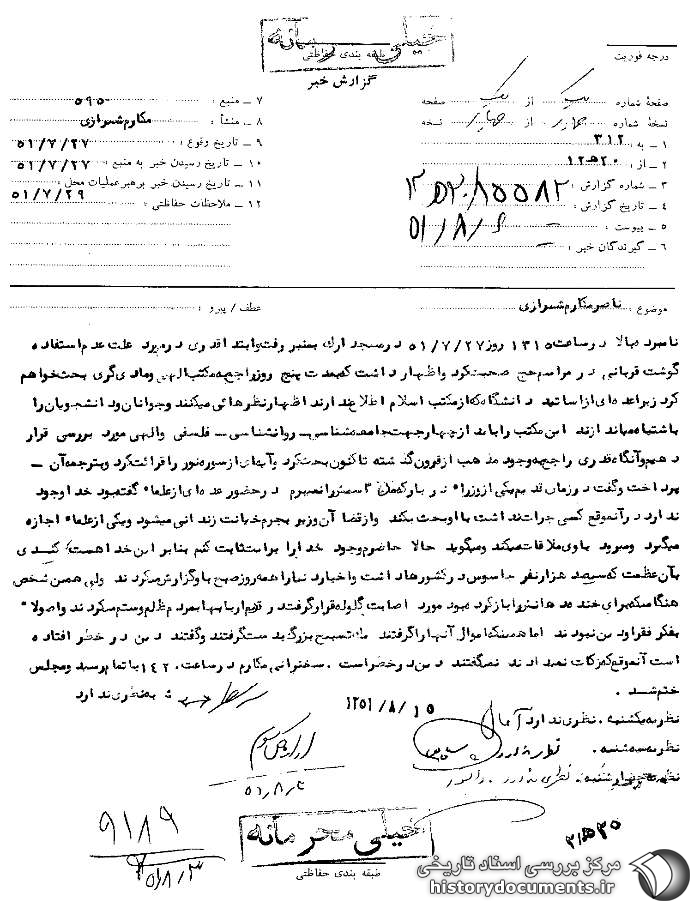 خیلی محرمانه
طبقه بندی حفاظتی
درجه فوریت
گزارش خبر
صفحه شماره یک از یک صفحه
نسخه شماره چهار از چهار نسخه
۱ ـ به : ۳۱۲
۲ ـ از : ۲۰ ه‍ ۱۲
۳ ـ شماره گزارش :
۴ ـ تاریخ گزارش : ۵۱/۸/۶
۵ ـ پیوست :
۶ ـ گیرندگان خبر :
۷ ـ منبع : ۵۹۵۰
۸ ـ منشأ : مکارم شیرازی
۹ ـ تاریخ وقوع : ۵۱/۷/۲۷
۱۰ ـ تاریخ رسیدن خبر به منبع : ۵۱/۷/۲۷
۱۱ ـ تاریخ رسیدن خبر برهبر عملیات محل : ۵۱/۷/۲۹
۱۲ ـ ملاحظات حفاظتی :
موضوع : ناصر مکارم شیرازی
عطف / پیرو :
نامبرده بالا در ساعت ۱۳۱۵ روز ۵۱/۷/۲۷ در مسجد ارک بمنبر رفت و ابتدا قدری در مورد علت عدم استفاده
گوشت قربانی در مراسم حج صحبت کرد و اظهار داشت که بمدت پنج روز راجع به مکتب الهی و مادی گری بحث خواهم
کرد زیرا عده ای از اساتید دانشگاه که از مکتب اسلام اطلاع ندارند اظهار نظرهائی میکنند و جوانان و دانشجویان را
باشتباه میاندازند این مکتب را باید از چهار جهت جامعه شناسی ـ روانشناسی ـ فلسفی و الهی مورد بررسی قرار
دهیم و آنگاه قدری راجع به وجود مذهب از قرون گذشته تاکنون بحث کرد و آیه ای از سوره نور را قرائت کرد و بترجمه آن ـ
پرداخت و گفت در زمان قدیم یکی از وزراء در بارگه در حضور عده ای از علماء گفته بود خدا وجود
ندارد در آنموقع کسی جرات نداشت با او بحث بکند و از قضا آن وزیر بجرم خیانت زندانی میشود و یکی از علماء اجازه
میگیرد و میرود با وی ملاقات میکند و میگوید حالا حاضرم وجود خدا را برایت ثابت کنم بنابر این خدا هست
بآن عظمت که سیصد هزار نفر جاسوس در کشورها داشت و اخبار دنیا را همه روز صبح باو گزارش میکردند ولی همین شخص
هنگامیکه برای خنده دهانش را باز کرده بود مورد اصابت گلوله قرار گرفت در قدیم اربابها بمردم ظلم و ستم میکردند و اصولا"
بفکر فقرا و دین نبودند اما همینکه اموال آنها را گرفتند تسبیح بزرگ بدست گرفتند و گفتند دین در خطر افتاده
است آنموقع که زکات نمیدادند نمیگفتند دین در خطر است . سخنرانی مکارم در ساعت ۱۴۲۰ باتمام رسید و مجلس
ختم شد .
نظریه یکشنبه . نظری ندارد
نظریه سه شنبه . نظری ندارد
نظریه چهارشنبه . نظری ندارد
۱۳۵۱/۸/۱۵
۵۱/۸/۶
۹۱۸۹
۵۱/۸/۳
خیلی محرمانه
طبقه بندی حفاظتی
مرکز بررسی اسناد تاریخی
historydocuments.ir